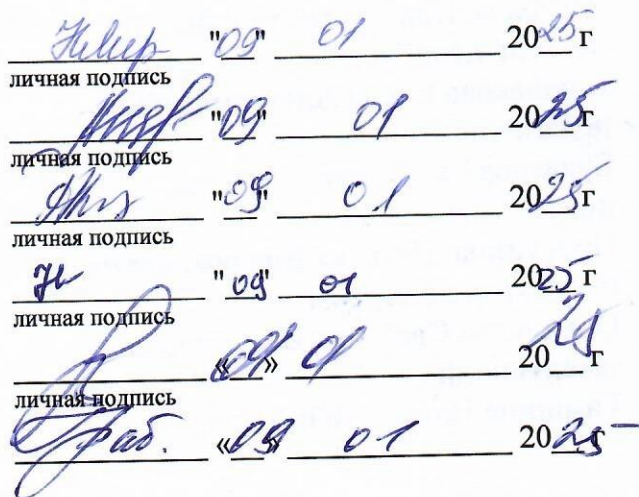 "09" 01 2025 г
личная подпись
"09" 01 2025 г
личная подпись
"09" 01 2025 г
личная подпись
"09" 01 2025 г
личная подпись
«09» 01 2025 г
личная подпись
«09» 01 2025 г